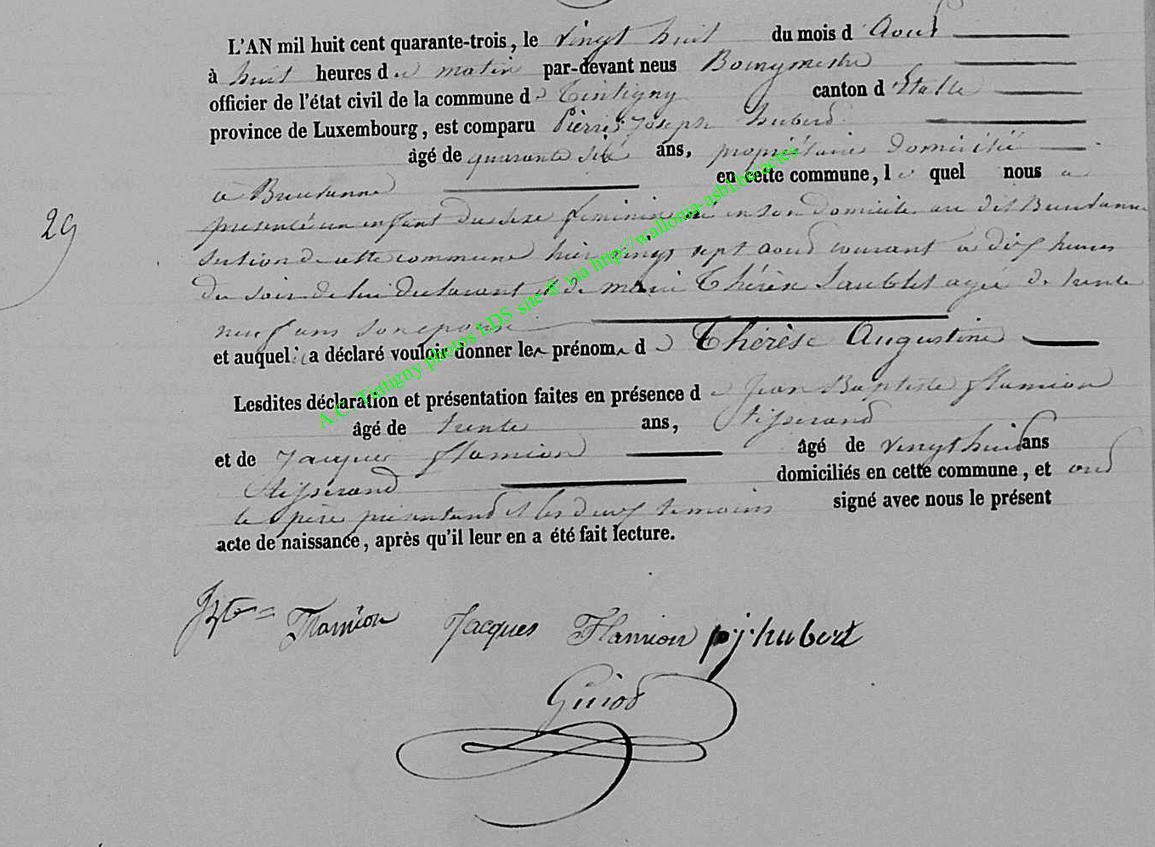 L'AN mil huit cent quarante-trois, le vingt huit du mois d'Aout
à huit heures du matin par-devant nous Bourgmestre
officier de l'état civil de la commune de Tintigny canton d'Etalle
province de Luxembourg, est comparu Pierre Joseph hubert
âgé de quarante ans, propriétaire domicilié
a Breuvanne en cette commune, le quel nous a
présenté un enfant du sexe feminin né en son domicile au dit Breuvanne
section de cette commune hier vingt sept aout courant a dix heures
du soir de lui declarant et de marie Thérèse agée de trente
neuf ans son epouse
et auquel il a déclaré vouloir donner le prénom de Thérèse Augustine
Lesdites déclaration et présentation faites en présence de Jean Baptiste flamion
âgé de trente ans, tisserand
et de Jacques flamion âgé de vingt huit ans
tisserand domiciliés en cette commune, et ont
le père présentant et les deux temoins signé avec nous le présent
acte de naissance, après qu'il leur en a été fait lecture.
29
A.C. Tintigny photos LDS site & via http://wallonia-asbl.be/actes
Flamion Jacques Flamion p j hubert